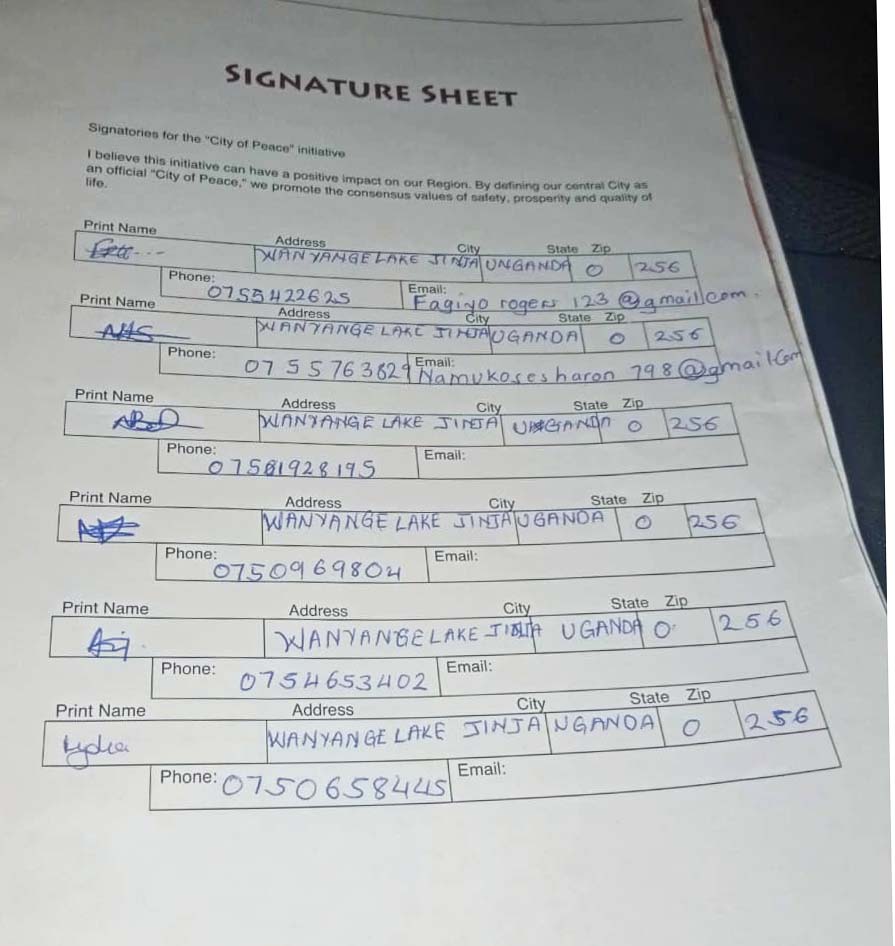 SIGNATURE SHEET
Signatories for the "City of Peace" initiative
I believe this initiative can have a positive impact on our Region. By defining our central City as
an official "City of Peace," we promote the consensus values of safety, prosperity and quality of
life.
Print Name Address City State Zip
WANYANGE LAKE JINJA UNGANDA 0 256
Phone: 0755422625 Email: Fagiyo rogers 123 @gmail.com.
Print Name Address City State Zip
WANYANGE LAKE JINJA UGANDA 0 256
Phone: 0755763829 Email: Namukosesharon 798@gmail.com
Print Name Address City State Zip
WANYANGE LAKE JINJA UGANDA 0 256
Phone: 07581928195 Email:
Print Name Address City State Zip
WANYANGE LAKE JINJA UGANDA 0 256
Phone: 0750969804 Email:
Print Name Address City State Zip
WANYANGE LAKE JINJA UGANDA 0 256
Phone: 0754653402 Email:
Print Name Address City State Zip
Lydia WANYANGE LAKE JINJA UGANDA 0 256
Phone: 0750658445 Email: